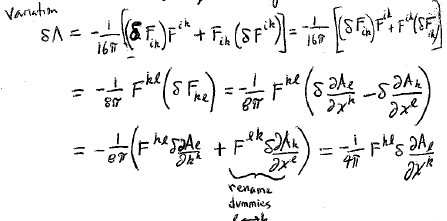 Variation
δΛ = -1/16π [(δF_ik)F^ik + F_ik(δF^ik)] = -1/16π [(δF_ik)F^ik + F^ik(δF_ik)]
= -1/8π F^kl (δF_kl) = -1/8π F^kl (δ ∂A_l/∂x^k - δ ∂A_k/∂x^l)
= -1/8π (F^kl δ ∂A_l/∂x^k + F^lk δ ∂A_k/∂x^l) = -1/4π F^kl δ ∂A_l/∂x^k
rename
dummies